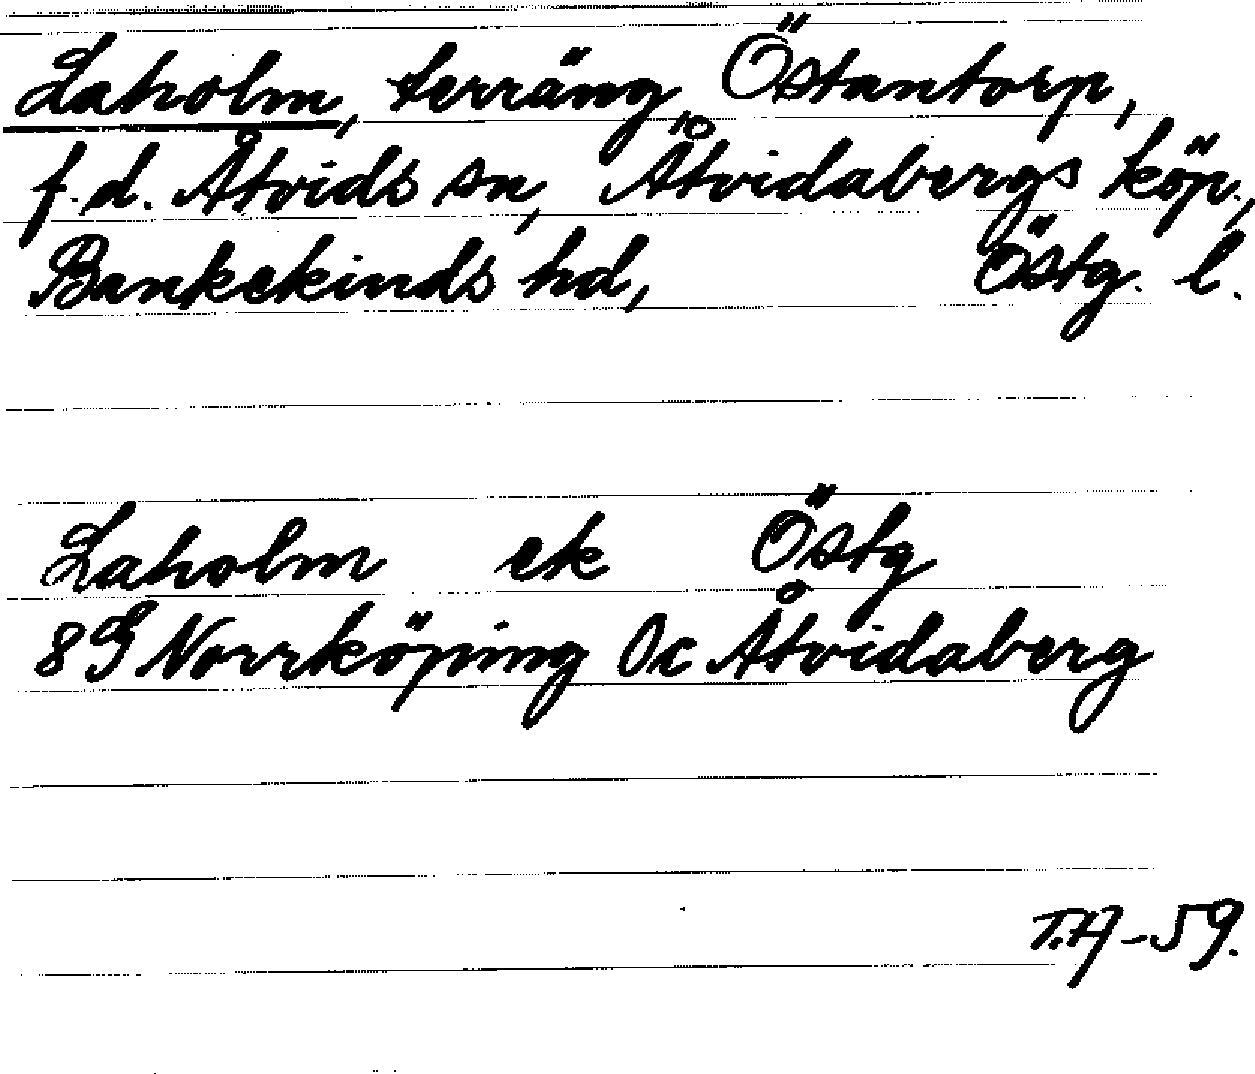 Laholm, terräng, Östantorp,
f.d. Åtvids sn, Åtvidabergs köp.,
Bankekinds hd, Östg. l.
Laholm ek Östg
8G Norrköping 0c Åtvidaberg
T.H-59.